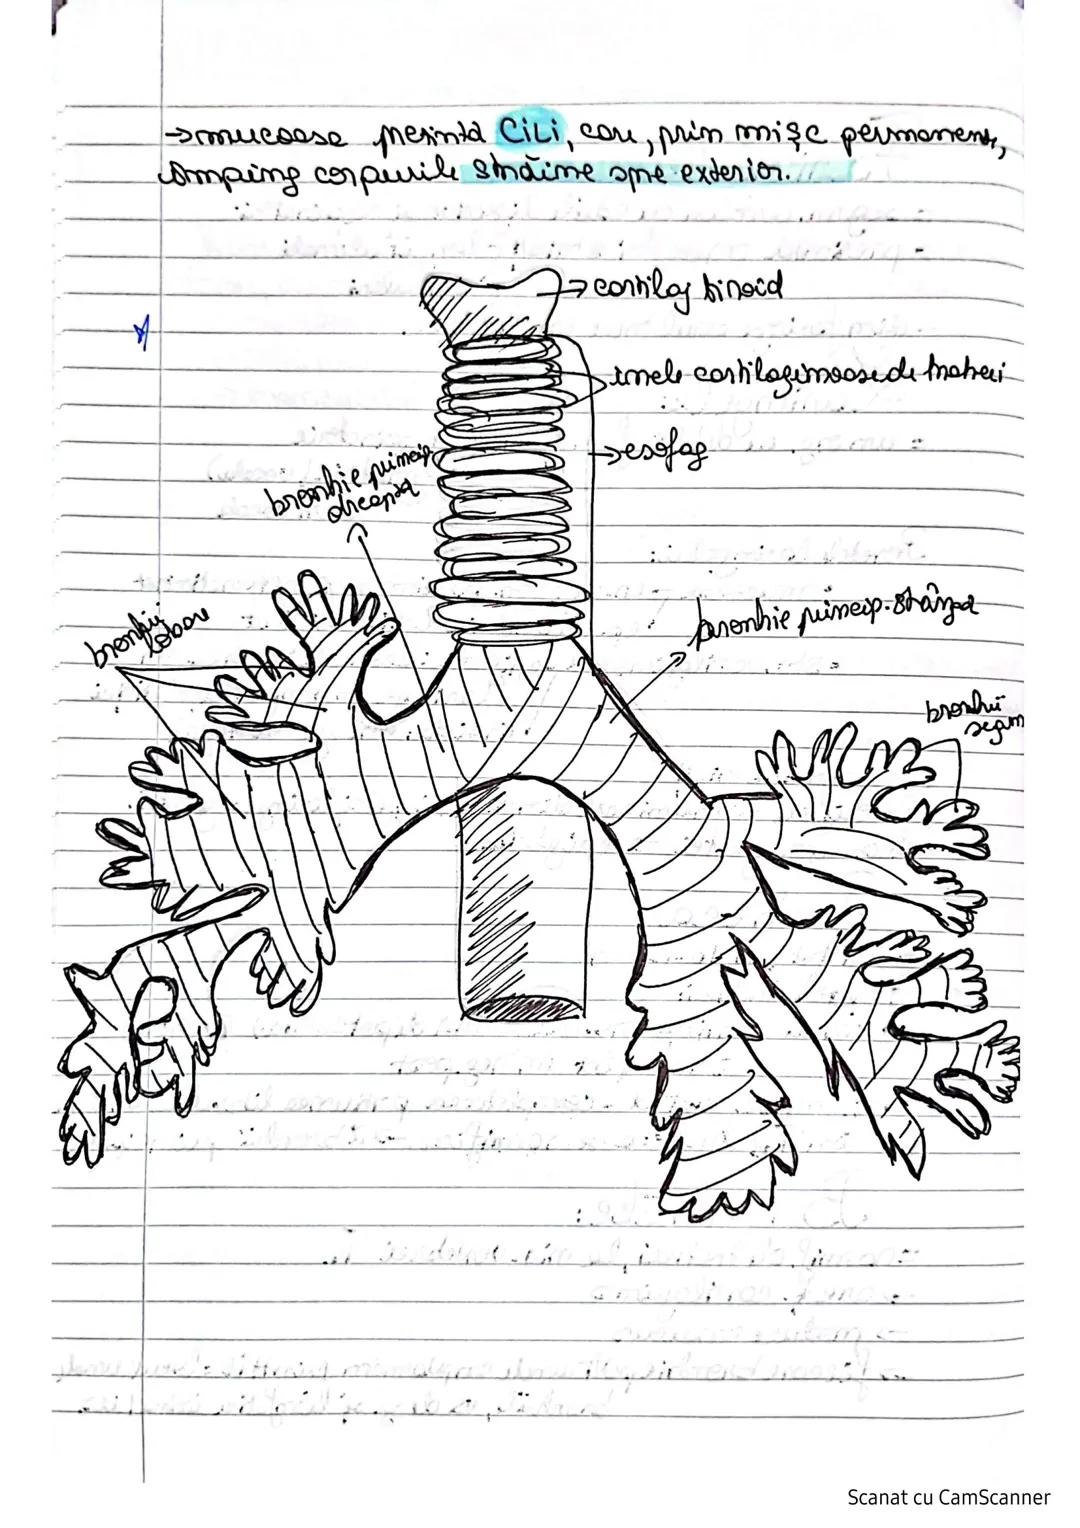 → mucoasa prezintă CILI, care, prin mișc permanent,
împing corpurile străine spre exterior.
→ cartilaj tiroid
inele cartilaginoase de trahei
→ esofag
bronhie princip
dreapta
bronhie princip. stângă
bronhii
lobare
bronhii
segm
Scanat cu CamScanner